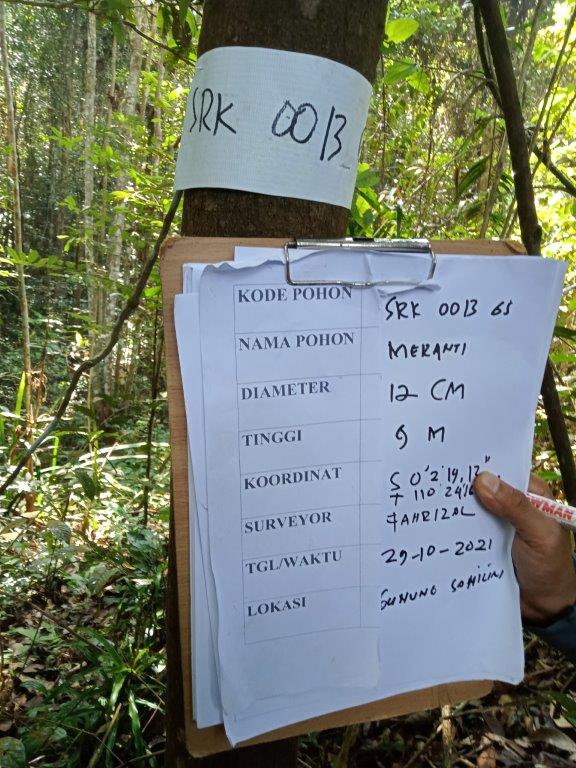 SRK 0013
KODE POHON SRK 0013 GS
NAMA POHON MERANTI
DIAMETER 12 CM
TINGGI 9 M
KOORDINAT S 0°2'19,12"
T 110°24'
SURVEYOR FAHRIZAL
TGL/WAKTU 29-10-2021
LOKASI GUNUNG